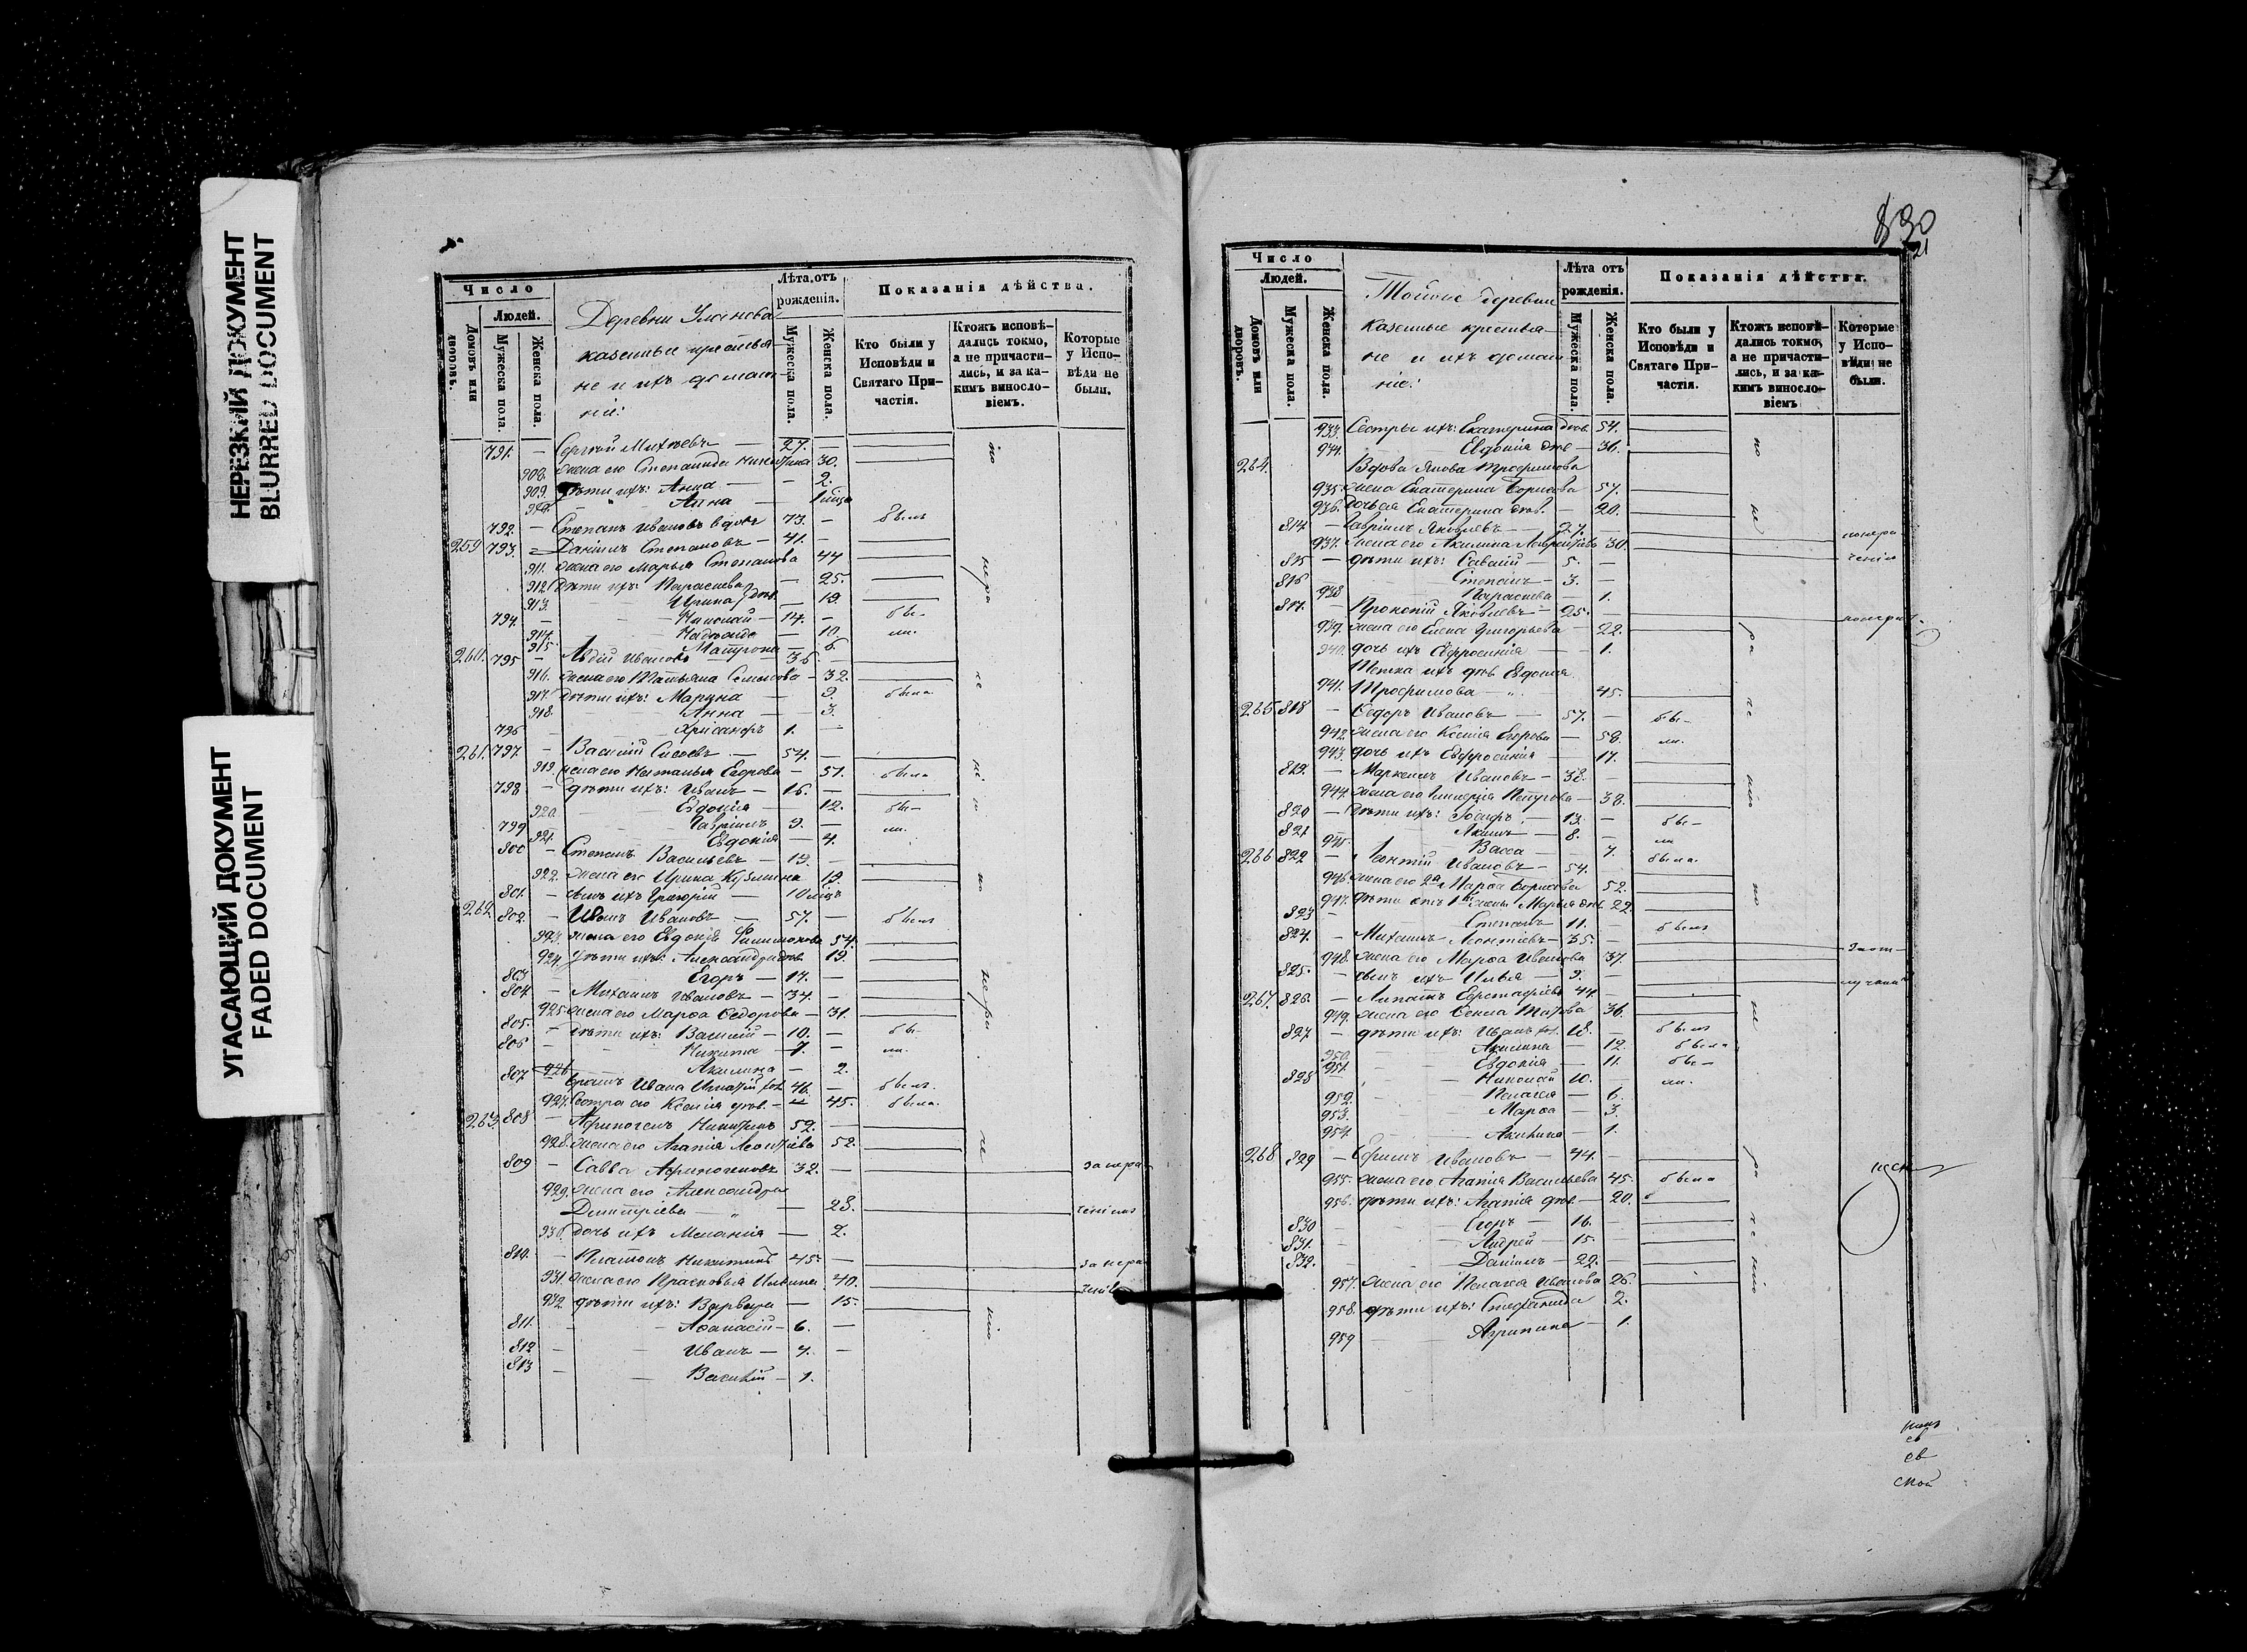 НЕРЕЗКИЙ ДОКУМЕНТ
BLURRED DOCUMENT
УГАСАЮЩИЙ ДОКУМЕНТ
FADED DOCUMENT
Число
Людей.
Домовъ или дворовъ.
Мужеска пола.
Женска пола.
Деревни
казенные крестья-
не и ихъ домаш-
ніе:
Лѣта отъ рожденія.
Мужеска пола.
Женска пола.
Показанія дѣйства.
Кто были у Исповѣди и Святаго Причастія.
Ктожъ исповѣдались токмо, а не причастились, и за какимъ винословіемъ.
Которые у Исповѣди не были.
791. — Сергѣй Михѣевъ — 27. —
908. жена его Степанида Никитина 30.
909. дѣти ихъ: Анна — — 2.
Анна — 1
792. — Степанъ Ивановъ вдов 73. — былъ
259 793. — Даніилъ Степановъ — 41. —
911. жена его Марья Степанова 44
912 дѣти ихъ: Параскева — 25.
913. Ирина дѣв. — 19.
794. — Николай — 14. — бы-
914. Надежда — 10. ли.
915. Матрона — 6.
260. 795 — Авдій Ивановъ — 36. —
916. жена его Татьяна Семенова — 32.
917. дѣти ихъ: Марина — 9. была
918. Анна — 3.
796 Хрисанфъ 1. —
261. 797. — Василій Сысоевъ — 54. —
919. жена его Наталья Егорова — 51. была
798 — дѣти ихъ: Иванъ — 16. —
920. Евдокія — 12. бы-
799 Гавріилъ 9. — ли.
921. Евдокія — 4.
800 — Степанъ Васильевъ — 19. —
922. жена его Ирина Кузмина 19
801. — сынъ ихъ Григорій — 10
262 802. — Иванъ Ивановъ — 57. — былъ
923. жена его Евдокія Филимонова 54.
924. дѣти ихъ: Александра дѣв 19.
803 Егоръ — 17. —
804. — Михаилъ Ивановъ — 34. —
925. жена его Марѳа Ѳедорова — 31.
805. — дѣти ихъ: Василій — 10. — бы-
806 Никита — 7. — ли.
926 Акилина — 2.
807 братъ Ивана Игнатій хол. 46. — былъ.
927. Сестра его Ксенія дѣв. — 45. была.
263 808 — Афиногенъ Никитинъ 52. —
928. жена его Агапія Леонтіева 52.
809 — Савва Афиногеновъ 32. — за нера-
929. жена его Александра
Димитріева — 28. ченіемъ
930. дочь ихъ Меланія — 2.
810. — Платонъ Никитинъ 45. — за нера-
931. жена его Прасковья Ильина 40.
932. дѣти ихъ: Варвара — 15.
811. Аѳанасій — 6. —
812 Иванъ — 4. —
813 Василій — 1.
по нераченію по нера че нію
830
21
Число
Людей.
Домовъ или дворовъ.
Мужеска пола.
Женска пола.
Тойже деревни
казенные крестья-
не и ихъ домаш-
ніе:
Лѣта отъ рожденія.
Мужеска пола.
Женска пола.
Показанія дѣйства.
Кто были у Исповѣди и Святаго Причастія.
Ктожъ исповѣдались токмо, а не причастились, и за какимъ винословіемъ
Которые у Исповѣди не были.
933. Сестры ихъ: Екатерина дѣв. 54.
934. Евдокія дѣв — 31.
264. Вдова Якова Трофимова
935. жена Екатерина Борисова 57.
936. дочь ея Екатерина дѣв. — 20.
814 — Гавріилъ Яковлевъ — 27. — понера-
937. жена его Акилина Лаврентіева 30. ченію
815 — дѣти ихъ: Савватій — 5. —
816 — Степанъ — 3. —
938 Параскева — 1.
817. — Прокопій Яковлевъ — 25. —
939. жена его Елена Григорьева — 22.
940. дочь ихъ Евфросинія — 1.
Тетка ихъ дѣв Евдокія
941. Трофимова — 45.
265 818 — Ѳедоръ Ивановъ — 57. — бы-
942. жена его Ксенія Егорова — 58. ли.
943. дочь ихъ Евфросинія — 17.
819. — Маркеллъ Ивановъ — 38. —
944. жена его Гликерія Петрова — 38.
820 — дѣти ихъ: Іосифъ — 13. — бы-
821 Акимъ — 8. — ли
945. Васса — 7. была.
266 822 — Леонтій Ивановъ — 54. —
946. жена его 2я Марѳа Борисова 52.
947. дѣти отъ 1й жены Марья дѣв 22.
823 — Степанъ 11. — былъ
824. — Михаилъ Леонтіевъ — 35. — Заот-
948. жена его Марѳа Иванова 37.
825. — сынъ ихъ Илья — 9. —
267. 826. — Липатъ Евстафіевъ 44. —
949. жена его Ѳекла Титова 36.
827 — дѣти ихъ: Иванъ хол. 18. — былъ
950. Акилина — 12. была
951. Евдокія — 11. бы-
828 Николай 10. — ли.
952. Пелагея — 6.
953. Марѳа — 3.
954. Акилина — 1.
268 829 — Ефимъ Ивановъ — 44. —
955. жена его Агапія Васильева 45. была
956. дѣти ихъ: Агапія дѣв. — 20.
830 Егоръ — 16. —
831. Андрей — 15. —
832. Даніилъ — 22. —
957. жена его Пелагея Иванова 26.
958. дѣти ихъ: Степанида 2.
959 Агрипина — 1.
по не ра че нію по не ра че нію
ской